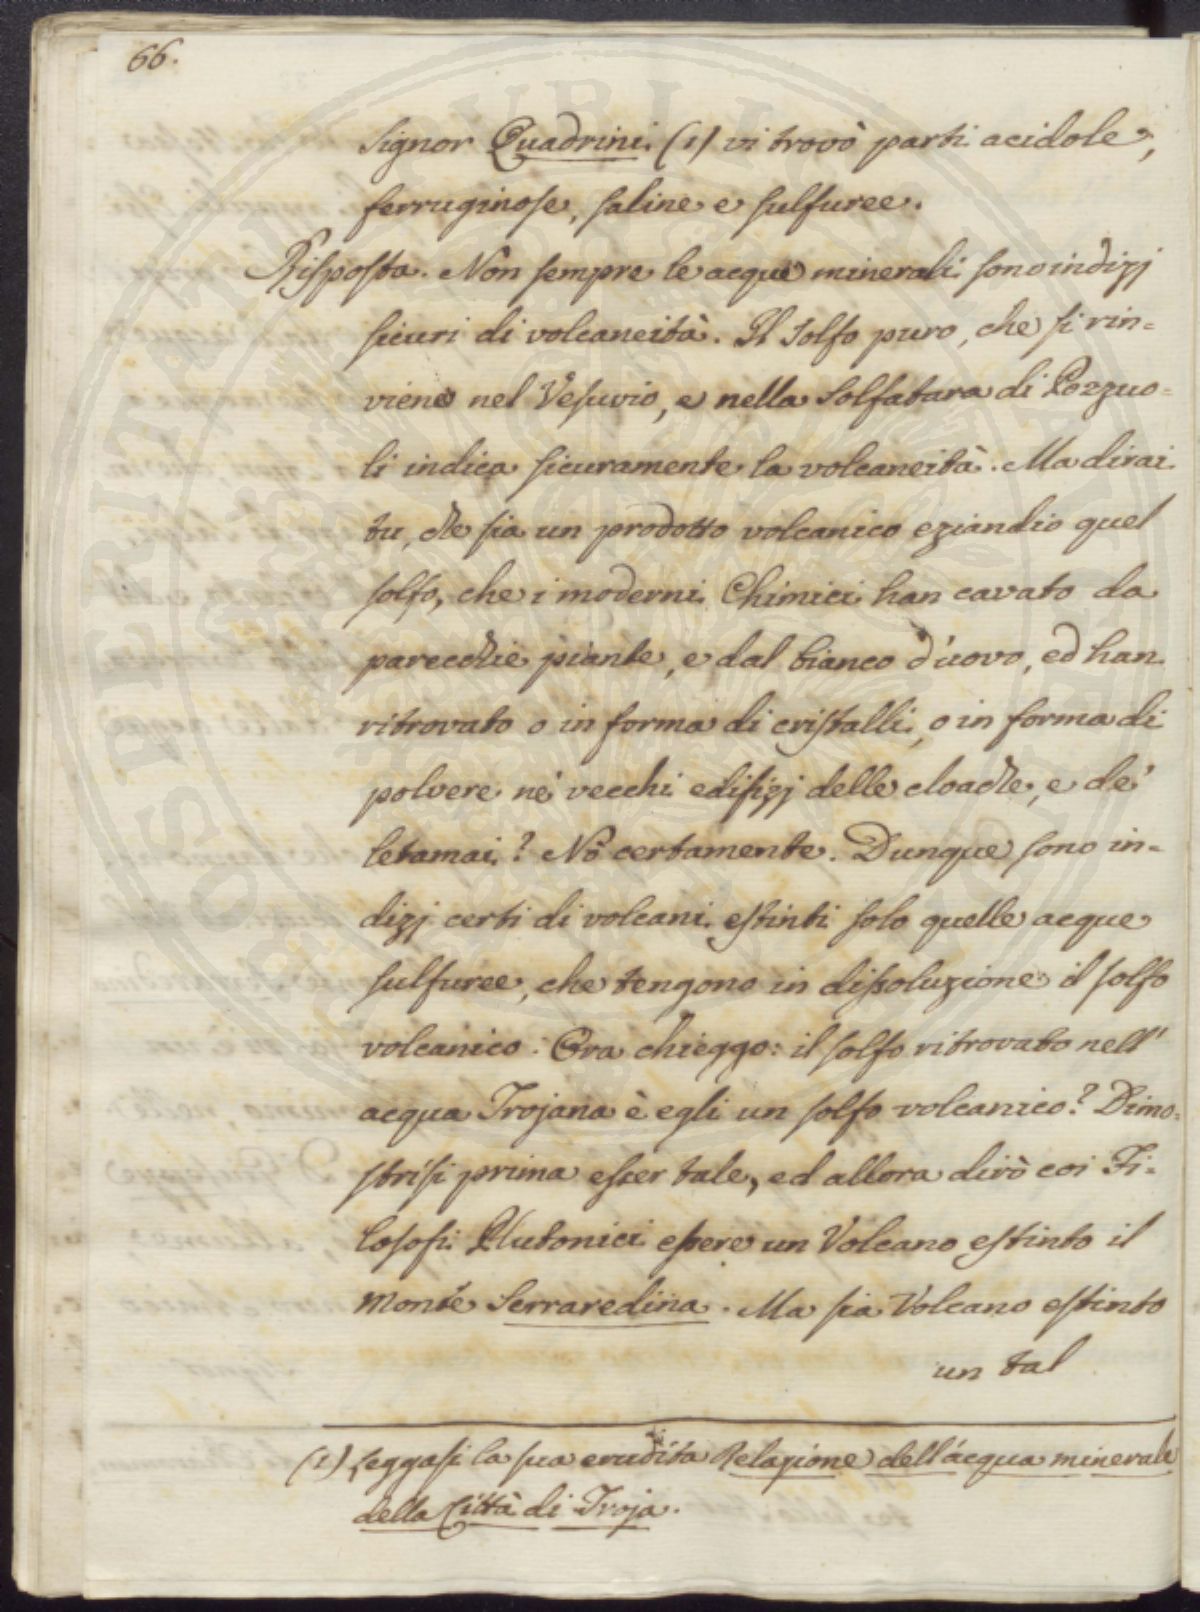 66.
Signor Quadrini (1) vi trovò parti acidole,
ferruginose, saline e sulfuree.
Risposta. Non sempre le acque minerali sono indizj
sicuri di volcaneità. Il solfo puro, che si rin=
viene nel Vesuvio, e nella Solfatara di Pozzuo=
li indica sicuramente la volcaneità. Ma dirai
tu, che sia un prodotto volcanico eziandio quel
solfo, che i moderni Chimici han cavato da
parecchie piante, e dal bianco d'uovo, ed han
ritrovato o in forma di cristalli, o in forma di
polvere ne' vecchi edifizj delle cloache, e de'
letamai? Nò certamente. Dunque sono in=
dizj certi di volcani estinti solo quelle acque
sulfuree, che tengono in dissoluzione il solfo
volcanico. Ora chieggo: il solfo ritrovato nell'
acqua Trojana è egli un solfo volcanico? Dimo=
strisi prima esser tale, ed allora dirò coi Fi=
losofi Plutonici essere un Volcano estinto il
monte Serraredina. Ma sia Volcano estinto
un tal
(1) Leggasi la sua erudita Relazione dell'acqua minerale
della Città di Troja.